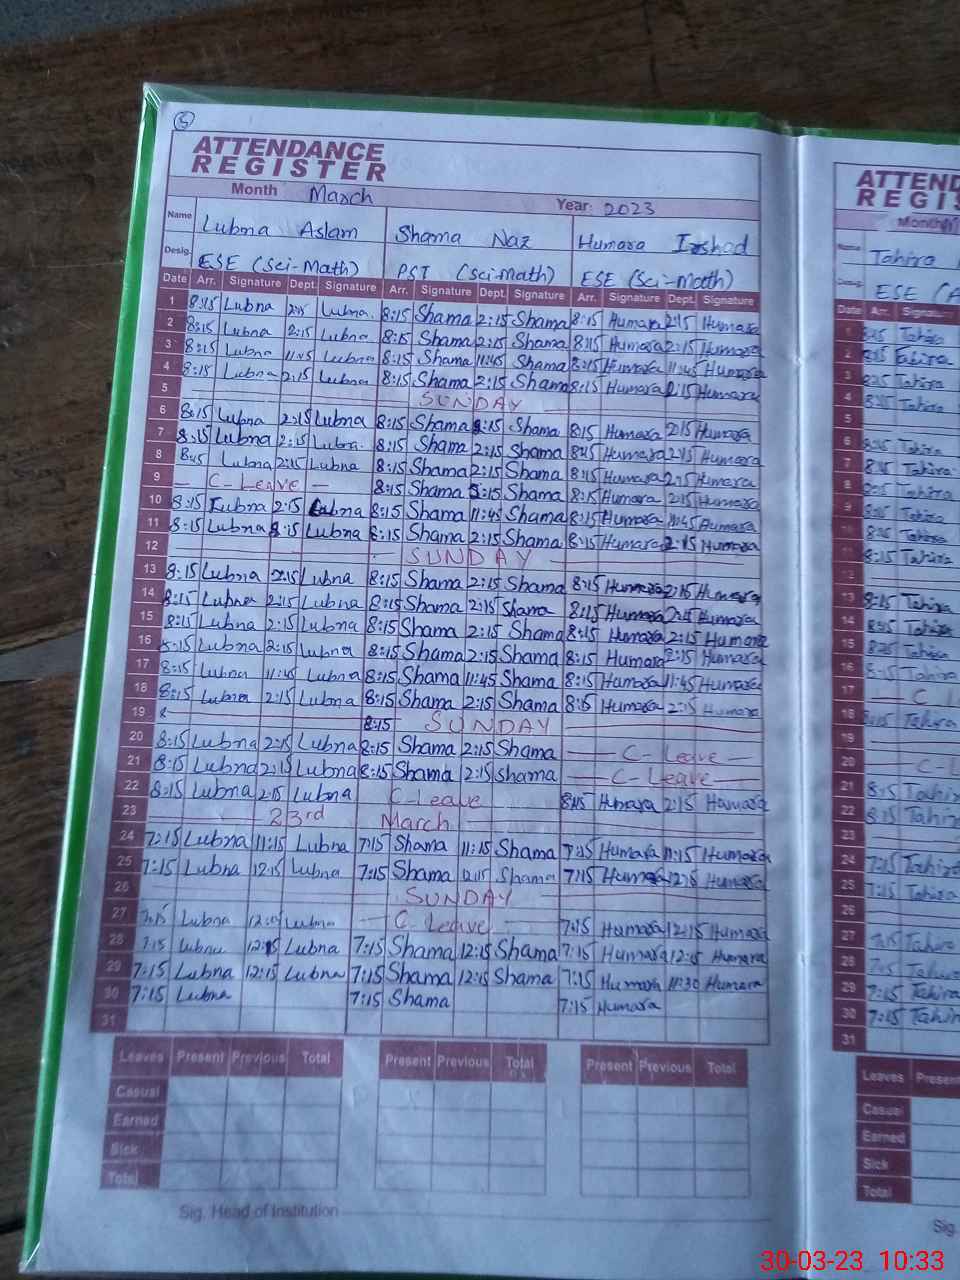 5
ATTENDANCE
REGISTER
Month March Year: 2023
Name Lubna Aslam Shama Naz Humara Irshad
Desig. ESE (Sci-Math) PST (Sci-math) ESE (Sci-math)
Date Arr. Signature Dept. Signature Arr. Signature Dept. Signature Arr. Signature Dept. Signature
1 8:15 Lubna 2:15 Lubna. 8:15 Shama 2:15 Shama 8:15 Humara 2:15 Humara
2 8:15 Lubna 2:15 Lubna. 8:15 Shama 2:15 Shama 8:15 Humara 2:15 Humara
3 8:15 Lubna 11:45 Lubna 8:15 Shama 11:45 Shama 8:15 Humara 11:45 Humara
4 8:15 Lubna 2:15 Lubna 8:15 Shama 2:15 Shama 8:15 Humara 2:15 Humara
5 SUNDAY
6 8:15 Lubna 2:15 Lubna 8:15 Shama Shama 8:15 Humara 2:15 Humara
7 8:15 Lubna 2:15 Lubna. 8:15 Shama 2:15 Shama 8:15 Humara 2:15 Humara
8 Lubna 2:15 Lubna 8:15 Shama 2:15 Shama 8:15 Humara 2:15 Humara
9 — C-Leave — 8:15 Shama Shama 8:15 Humara 2:15 Humara
10 8:15 Lubna 2:15 Lubna 8:15 Shama 11:45 Shama 8:15 Humara 11:45 Humara
11 8:15 Lubna Lubna 8:15 Shama 2:15 Shama 8:15 Humara 2:15 Humara
12 SUNDAY
13 8:15 Lubna 2:15 Lubna 8:15 Shama 2:15 Shama 8:15 Humara 2:15 Humara
14 8:15 Lubna 2:15 Lubna 8:15 Shama 2:15 Shama 8:15 Humara 2:15 Humara
15 8:15 Lubna 2:15 Lubna 8:15 Shama 2:15 Shama 8:15 Humara 2:15 Humara
16 8:15 Lubna 2:15 Lubna 8:15 Shama 2:15 Shama 8:15 Humara 2:15 Humara
17 8:15 Lubna 11:45 Lubna 8:15 Shama 11:45 Shama 8:15 Humara 11:45 Humara
18 8:15 Lubna 2:15 Lubna 8:15 Shama 2:15 Shama 8:15 Humara 2:15 Humara
19 8:15 SUNDAY
20 8:15 Lubna 2:15 Lubna 8:15 Shama 2:15 Shama — C-Leave —
21 8:15 Lubna 2:15 Lubna 8:15 Shama 2:15 Shama — C-Leave —
22 8:15 Lubna 2:15 Lubna C-Leave 8:15 Humara 2:15 Humara
23 23rd March
24 7:15 Lubna 11:15 Lubna 7:15 Shama 11:15 Shama 7:15 Humara 11:15 Humara
25 7:15 Lubna 12:15 Lubna 7:15 Shama 12:15 Shama 7:15 Humara 12:15 Humara
26 SUNDAY
27 7:15 Lubna Lubna — C-Leave — 7:15 Humara 12:15 Humara
28 7:15 Lubna 12:15 Lubna 7:15 Shama 12:15 Shama 7:15 Humara 12:15 Humara
29 7:15 Lubna 12:15 Lubna 7:15 Shama 12:15 Shama 7:15 Humara 11:30 Humara
30 7:15 Lubna 7:15 Shama 7:15 Humara
31
Leaves Present Previous Total Present Previous Total Present Previous Total
Casual
Earned
Sick
Total
Sig. Head of Institution
ATTEND
REGIS
Month
Name Tahira
Desig. ESE (A
Date Arr. Signatu
1 8:15 Tahira
2 8:15 Tahira
3 8:15 Tahira
4 8:15 Tahira
5
6 8:15 Tahira
7 8:15 Tahira
8 8:15 Tahira
9 8:15 Tahira
10 8:15 Tahira
11 8:15 Tahira
12
13 8:15 Tahira
14 8:15 Tahira
15 8:15 Tahira
16 8:15 Tahira
17 — C
18 8:15 Tahira
19
20 — C
21 8:15 Tahira
22 8:15 Tahira
23
24 7:15 Tahira
25 7:15 Tahira
26
27 7:15 Tahira
28 7:15 Tahira
29 7:15 Tahira
30 7:15 Tahira
31
Leaves Present
Casual
Earned
Sick
Total
Sig.
30-03-23 10:33